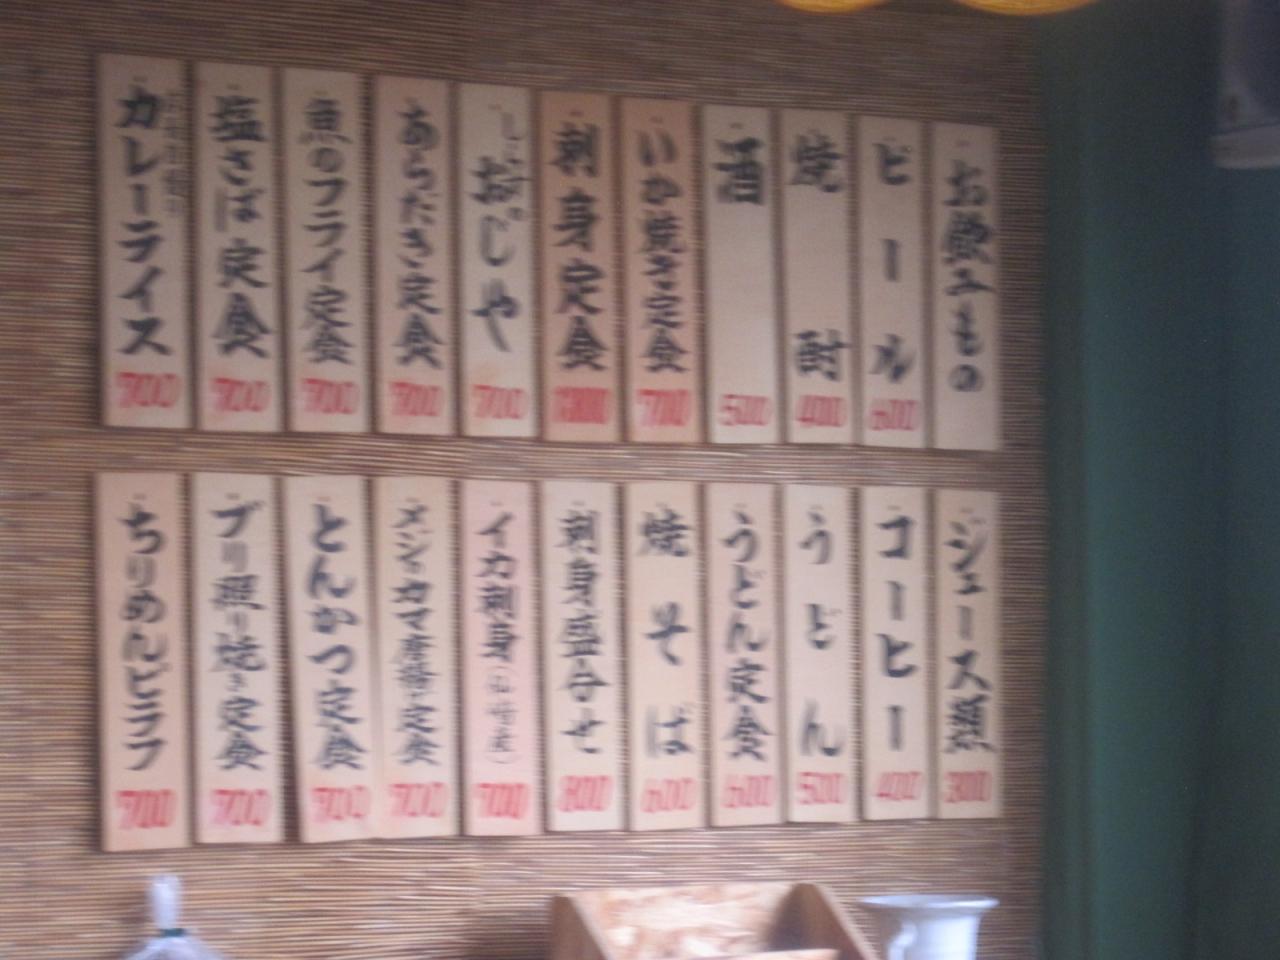 お飲みもの
ビール 600
焼酎 400
酒 500
いか焼き定食 700
刺身定食 1300
おじや 700
あらだき定食 700
魚のフライ定食 700
塩さば定食 700
カレーライス 700
ジュース類 300
コーヒー 400
うどん 500
うどん定食 600
焼そば 600
刺身盛合せ 800
イカ刺身(仙崎産) 700
メジイカマ唐揚定食 700
とんかつ定食 700
ブリ照り焼き定食 700
ちりめんピラフ 700